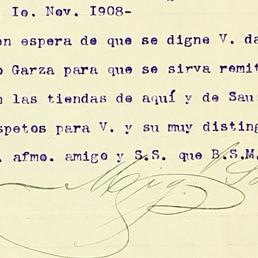 . Io. Nov. I908-
en espera de que se digne V. da
o Garza para que se sirva remit
n las tiendas de aquí y de Sau
spetos para V. y su muy disting
. afmo. amigo y S.S. que B.S.M.